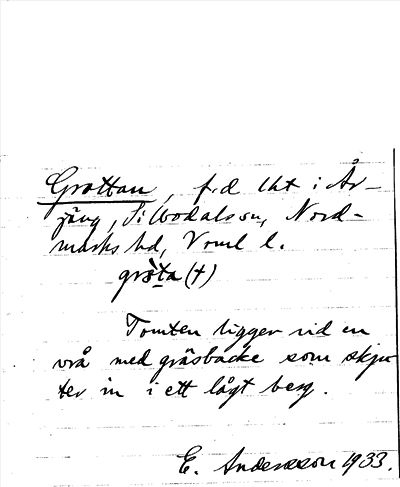 Grottan, f.d lht i År-
jäng, Silbodals sn, Nord-
marks hd, Vrml l.
gròta (+)
Tomten ligger vid en
vrå med gräsbacke som skju
ter in i ett lågt berg.
E. Andersson 1933.